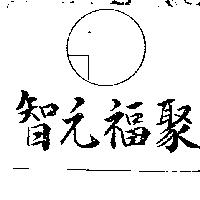 智元福聚